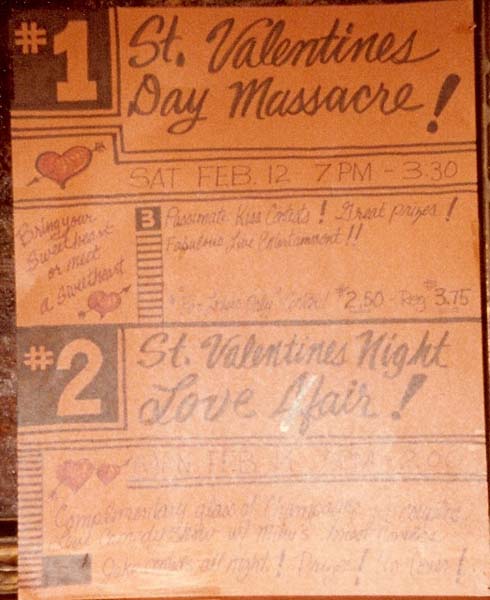 #1 St. Valentines
Day Massacre!
SAT FEB. 12 7 PM - 3:30
Bring your
Sweetheart
or meet
a Sweetheart
3 Passionate Kiss Contests! Great prizes!
Fabulous Live Entertainment!!
$2.50 - Reg $3.75
#2 St. Valentines Night
Love Afair!
MON. FEB. 14
Complimentary glass of Champagne
Comedy Show w/
all night! Prizes!